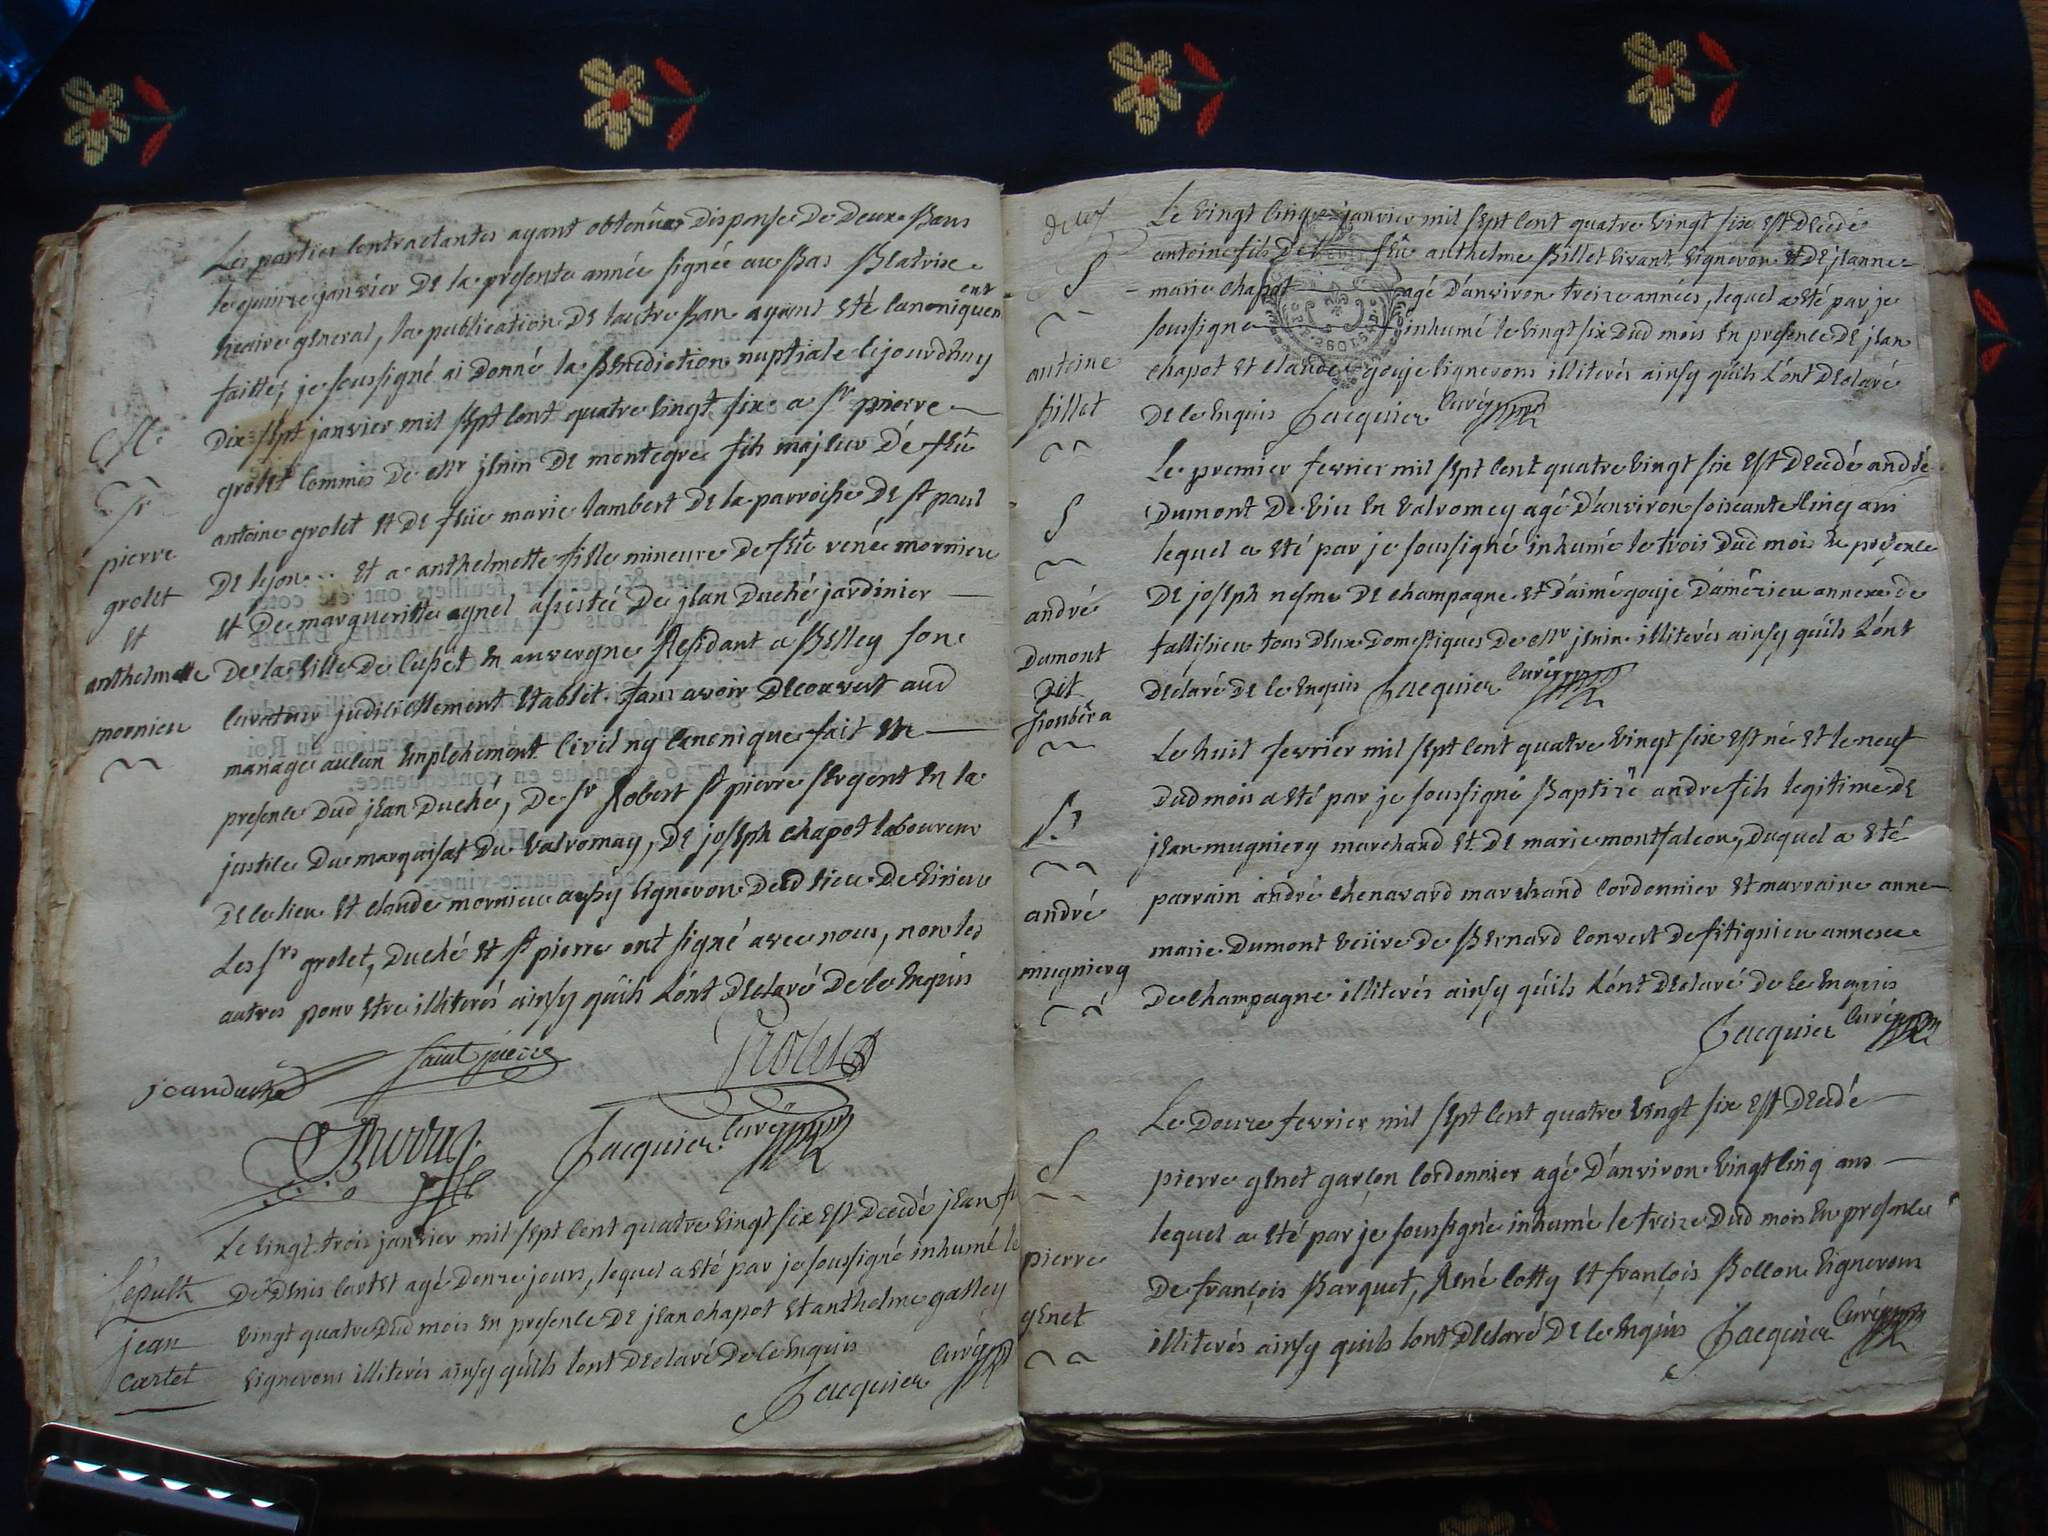 Les parties contractantes ayant obtenûes dispense de deux bans
le quinze janvier de la presente année signée au bas
vicaire general, la publication de lautre ban ayant été canoniquem
ent
faitte, je soussigné ai donné la benediction nuptiale cejourdhuy
dix sept janvier mil sept cent quatre vingt six a sr pierre
grolet commis de mr jenin de montegre fils majeur de feû
antoine grolet et de feüe marie lambert de la parroisse de st paul
de lyon et a anthelmette fille mineure de feû rené mornieu
et de margueritte agnel assistée de jean duché jardinier
de la ville de cusset en auvergne residant a belley son
curateur judiciellement etablit sans avoir decouvert aud
mariage aucun empechement civil ny canonique fait en
presence dud jean duché, de sr Robert st pierre sergent en la
justice du marquisat du valromay, de joseph chapot laboureur
de ce lieu et claude mornieu aussy vigneron dud lieu de virieu
Les srs grolet, duché et st pierre ont signé avec nous, non les
autres pour etre illiterés ainsy qu'ils l'ont declaré de ce enquis
sr
pierre
grolet
et
anthelmette
mornieu
jean duché
saint pierre
Grolet
Jacquier curé
Le vingt trois janvier mil sept cent quatre vingt six est decedé jean f
de denis cartet agé donze jours, lequel a eté par je soussigné inhumé le
vingt quatre dud mois en presence de jean chapot et anthelme galley
vignerons illiterés ainsy qu'ils l'ont declaré de ce enquis
Jacquier curé
sepult
jean
cartet
Le vingt cinq janvier mil sept cent quatre vingt six est decedé
antoine fils de feû anthelme billet vivant vigneron et de jeanne
marie chapot agé d'anviron treize années, lequel a eté par je
soussigné inhumé le vingt six dud mois en presence de jean
chapot et claude gouje vignerons illiterés ainsy qu'ils l'ont declaré
de ce enquis Jacquier curé
S
antoine
billet
Le premier fevrier mil sept cent quatre vingt six est decedé andré
Dumont de vieu en valromey agé d'anviron soixante cinq ans
lequel a eté par je soussigné inhumé le trois dud mois en presence
de joseph nesme de champagne et d'aimé gouje d'amèzieu annexe de
tallissieu tous deux domestiques de mr jenin illiterés ainsy qu'ils l'ont
declaré de ce enquis Jacquier curé
S
andré
Dumont
dit
Le huit fevrier mil sept cent quatre vingt six est né et le neuf
dud mois a eté par je soussigné baptizé andre fils legitime de
jean mugniery marchand et de marie montfalcon, duquel a eté
parrain andré chenavard marchand cordonnier et marraine anne
marie Dumont veüve de bernard convert de fitignieu annexe
de champagne illiterés ainsy qu'ils l'ont declaré de ce enquis
Jacquier curé
andré
mugniery
Le douze fevrier mil sept cent quatre vingt six est decedé
pierre genet garçon cordonnier agé d'anviron vingt cinq ans
lequel a eté par je soussigné inhumé le treize dud mois en presence
de françois barquet, René cotty et françois bollon vignerons
illiterés ainsy qu'ils l'ont declaré de ce enquis Jacquier curé
S
pierre
genet